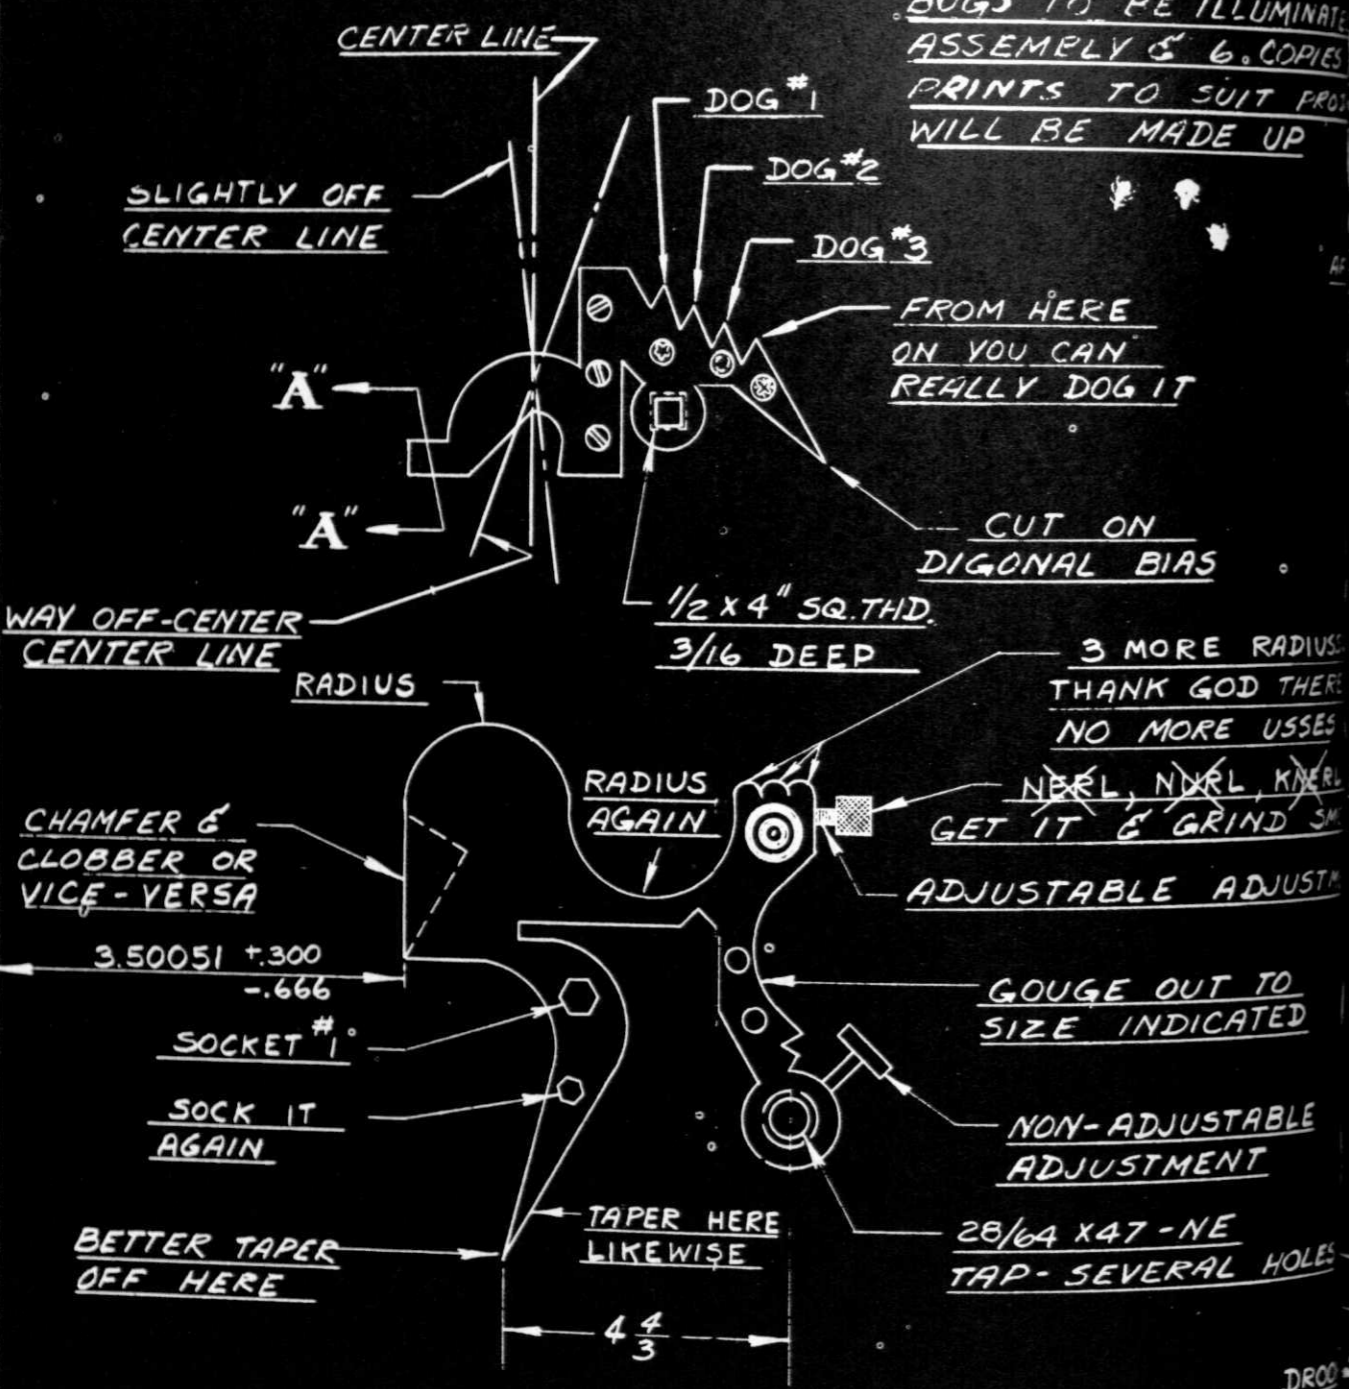 BUGS TO BE ILLUMINATE
ASSEMBLY & 6. COPIES
PRINTS TO SUIT PROD
WILL BE MADE UP
CENTER LINE
DOG #1
DOG #2
SLIGHTLY OFF
CENTER LINE
DOG #3
FROM HERE
ON YOU CAN
REALLY DOG IT
"A"
"A"
CUT ON
DIGONAL BIAS
1/2 X 4" SQ. THD.
3/16 DEEP
WAY OFF-CENTER
CENTER LINE
RADIUS
3 MORE RADIUS
THANK GOD THERE
NO MORE USSES
RADIUS
AGAIN
NERL, NURL, KNERL
GET IT & GRIND SM
CHAMFER &
CLOBBER OR
VICE-VERSA
ADJUSTABLE ADJUSTM
3.50051 +.300
-.666
GOUGE OUT TO
SIZE INDICATED
SOCKET #1
SOCK IT
AGAIN
NON-ADJUSTABLE
ADJUSTMENT
TAPER HERE
LIKEWISE
28/64 X47-NE
TAP-SEVERAL HOLES
BETTER TAPER
OFF HERE
4 4/3
DROO